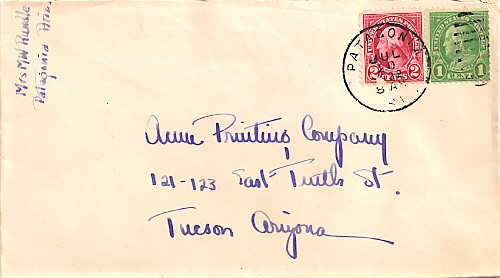 Mrs M W
Patagonia Ariz.
PATAGONIA
JUL
8 AM
2 CENTS 2
1 CENT 1
Acme Printing Company
121-123 East Tenth St.
Tucson Arizona